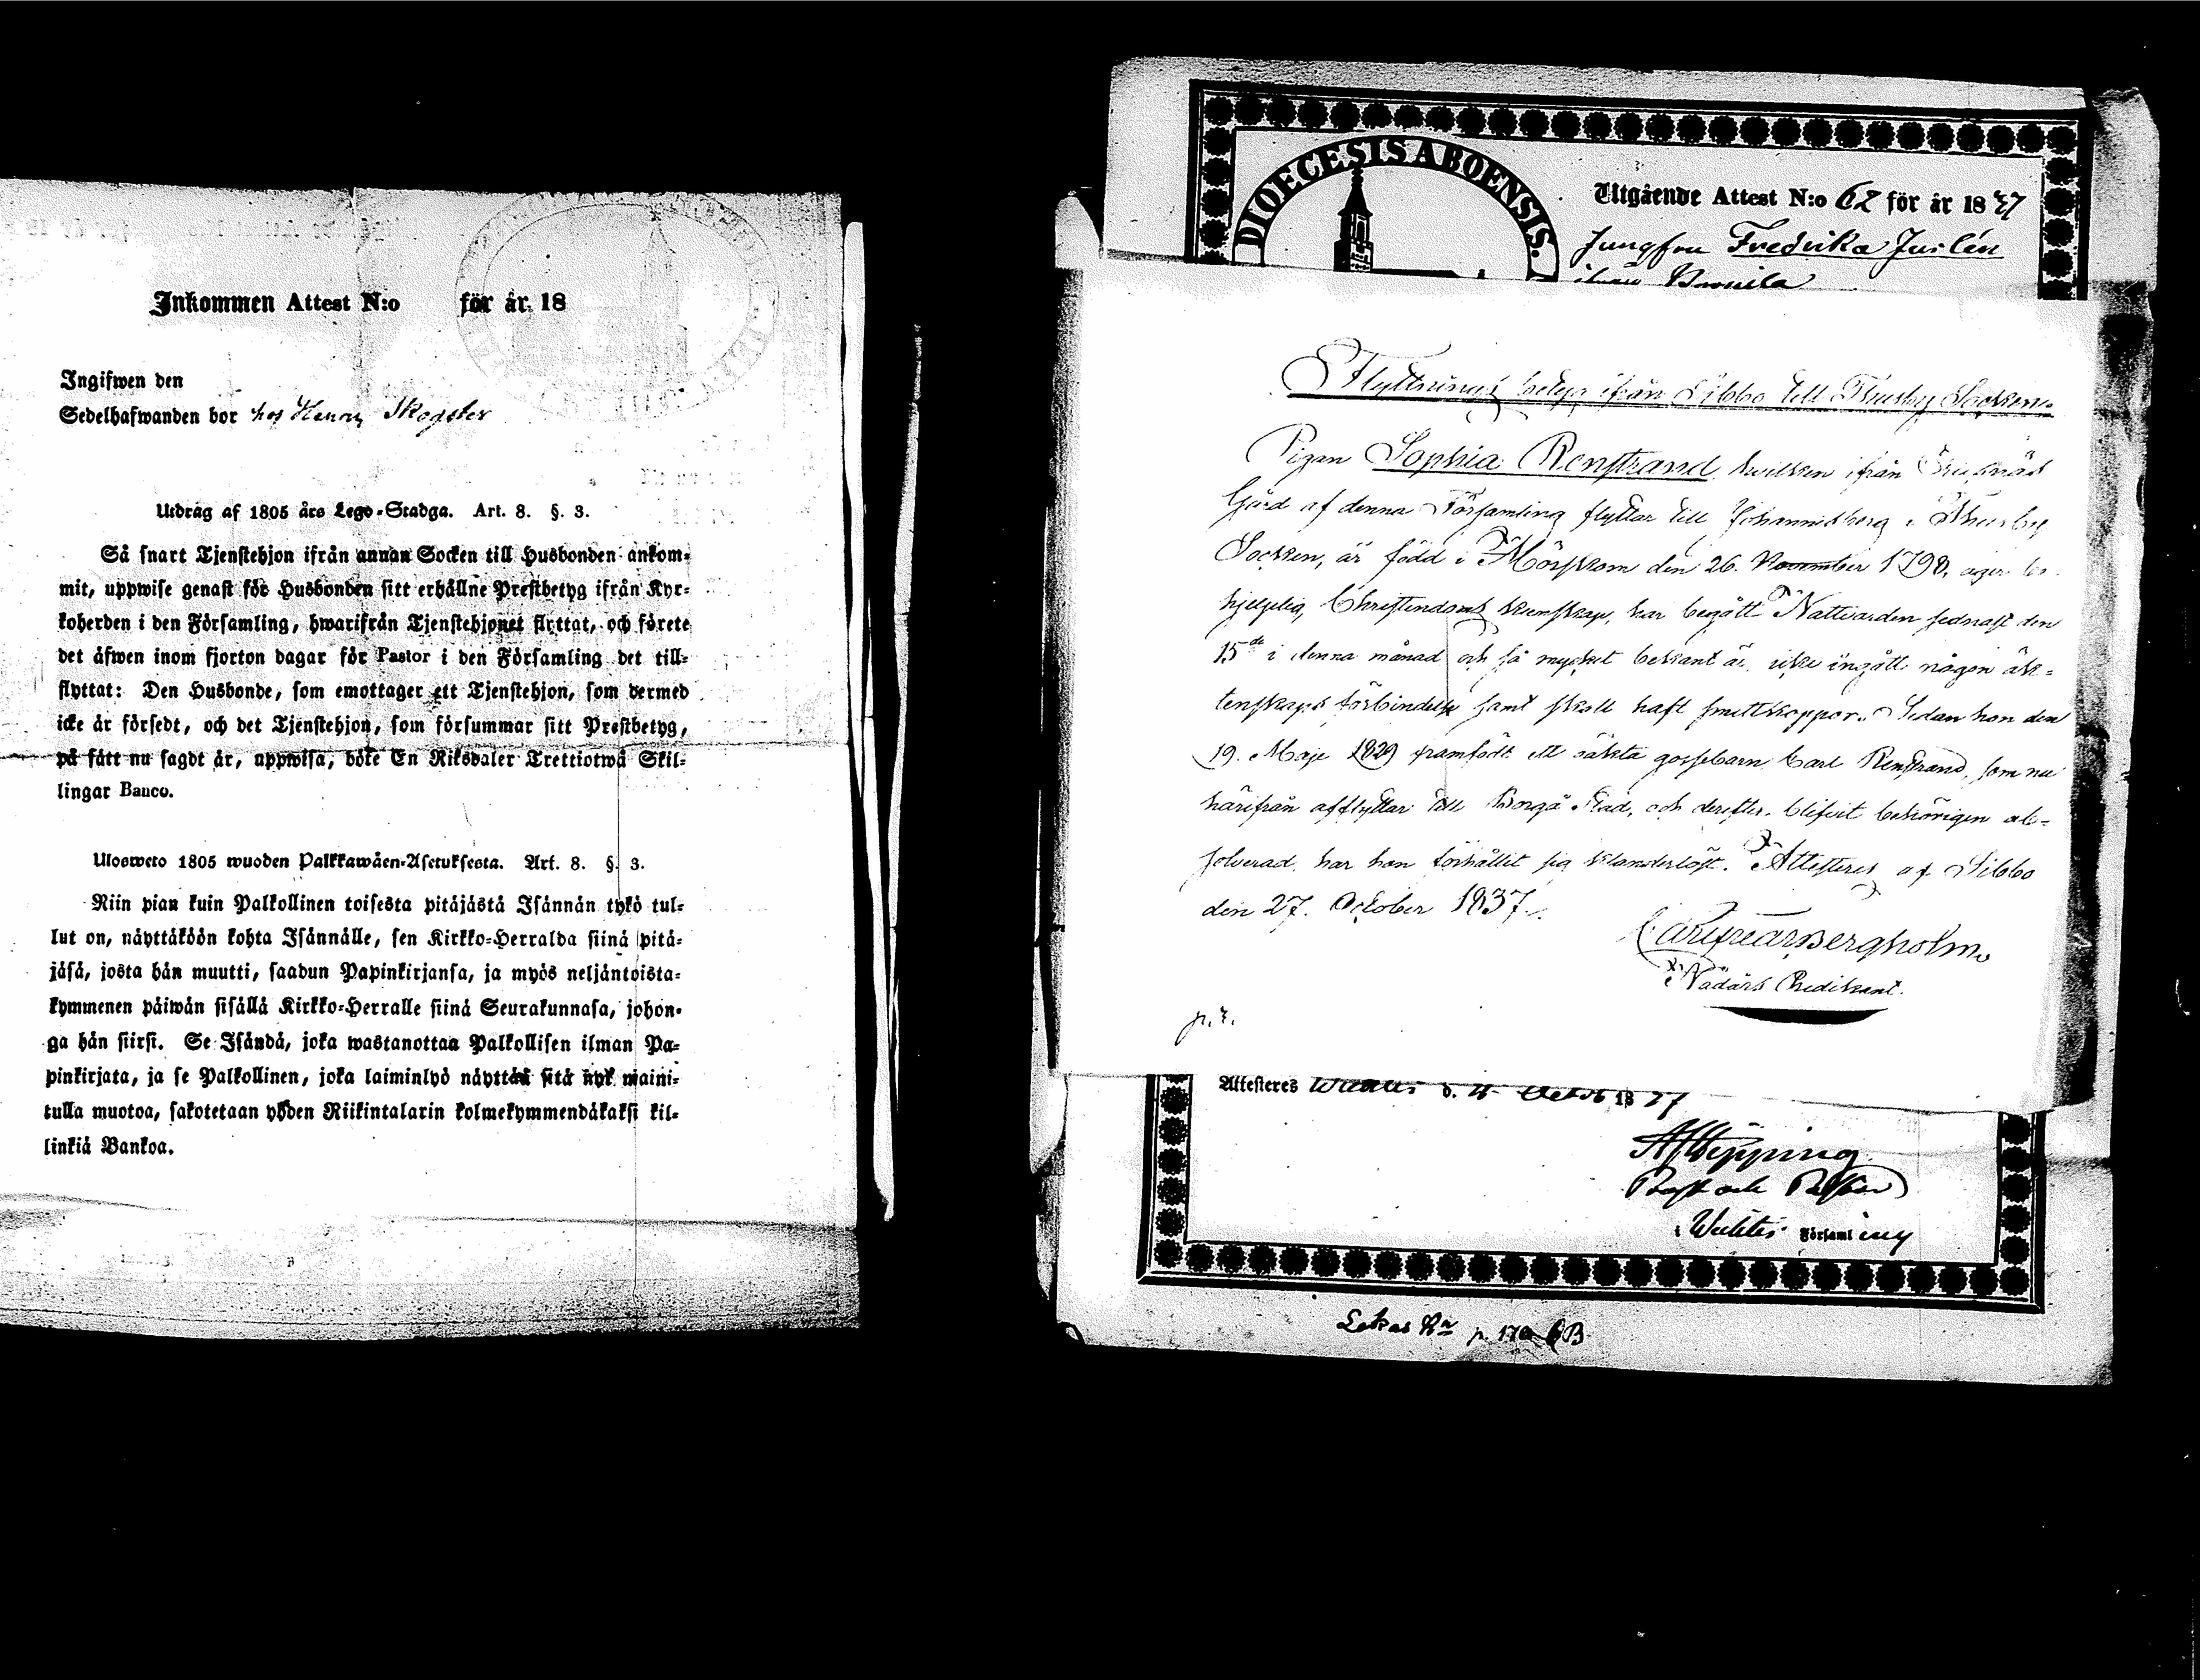 Inkommen Attest N:o för år 18
Ingifwen den
Sedelhafwanden bor hos Henrn Skogster
Utdrag af 1805 års Lego-Stadga. Art. 8. §. 3.
Så snart Tjenstehjon ifrån annan Socken till Husbonden ankom-
mit, uppwise genast för Husbonden sitt erhållne Prestbetyg ifrån Kyr-
koherden i den Församling, hwarifrån Tjenstehjonet flyttat, och förete
det äfwen inom fjorton dagar för Pastor i den Församling det till-
flyttat: Den Husbonde, som emottager ett Tjenstehjon, som dermed
icke är försedt, och det Tjenstehjon, som försummar sitt Prestbetyg,
på sätt nu sagdt är, uppwisa, böte En Riksdaler Trettiotwå Skil-
lingar Banco.
Ulosweto 1805 wuoden Palkkawäen-Asetuksesta. Art. 8. §. 3.
Niin pian kuin Palkollinen toisesta pitäjästä Isännän tykö tul-
lut on, näyttäköön kohta Isännälle, sen Kirkko-Herralda siinä pitä-
jäsä, josta hän muutti, saadun Papinkirjansa, ja myös neljäntoista-
kymmenen päiwän sisällä Kirkko-Herralle siinä Seurakunnasa, johon-
ga hän siirsi. Se Isändä, joka wastanottaa Palkollisen ilman Pa-
pinkirjata, ja se Palkollinen, joka laiminlyö näyttää sitä nyt maini-
tulla muotoa, sakotetaan yhden Riikintalarin kolmekymmendäkaksi kil-
linkiä Bankoa.
DIOECESIS ABOENSIS.
Utgående Attest N:o 62 för år 1837
Jungfru Fredrika Juslén
ifrån
Flyttnings betyg ifrån Sibbo till Thusby Socken.
Pigan Sophia Renstrand, hwilken ifrån
Gård af denna Församling flyttar till Johannisberg i Thusby
Socken, är född i Mörskom den 26. November 1798, äger be-
hjelpelig Christendoms kunskap, har begått Nattvarden sednast den
15de i denna månad och så mycket bekant är, icke ingått någon äk-
tenskaps förbindelse samt skall haft smittkoppor. Sedan hon den
19. Maje 1829 framfödt ett oäkta gossebarn Carl Renstrand, som nu
härifrån afflyttar till Borgå Stad, och derefter blifvit behörigen ab-
solverad, har hon förhållit sig klanderlöst. Attesteres af Sibbo
den 27. October 1837.
Bergholm
Nådårs Predikant.
Attesteres d. 1837
Prost och Pastor
i Församling